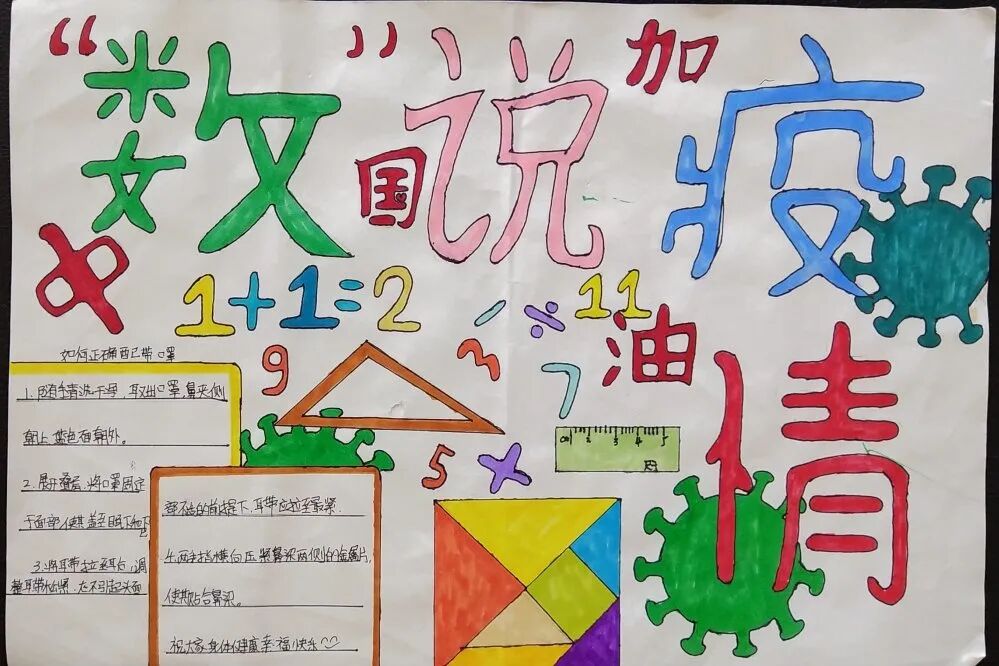 “数”说疫情
中国加油
1+1=2
- ÷ 11
9 3 7
5 ×
0 1 2 3 4 5
如何正确配带口罩
1. 手清洗干净，取出口罩，鼻夹侧
朝上，蓝色面朝外。
2. 展开叠层，将口罩固定
于面部，使其盖至眼下和下巴
3. 将耳带拉至耳后，调
整耳带松紧，在不引起头面
部不适的前提下，耳带应拉至最紧.
4. 两手指横向压紧鼻梁两侧的金属片，
使其贴合鼻梁。
祝大家身体健康幸福快乐